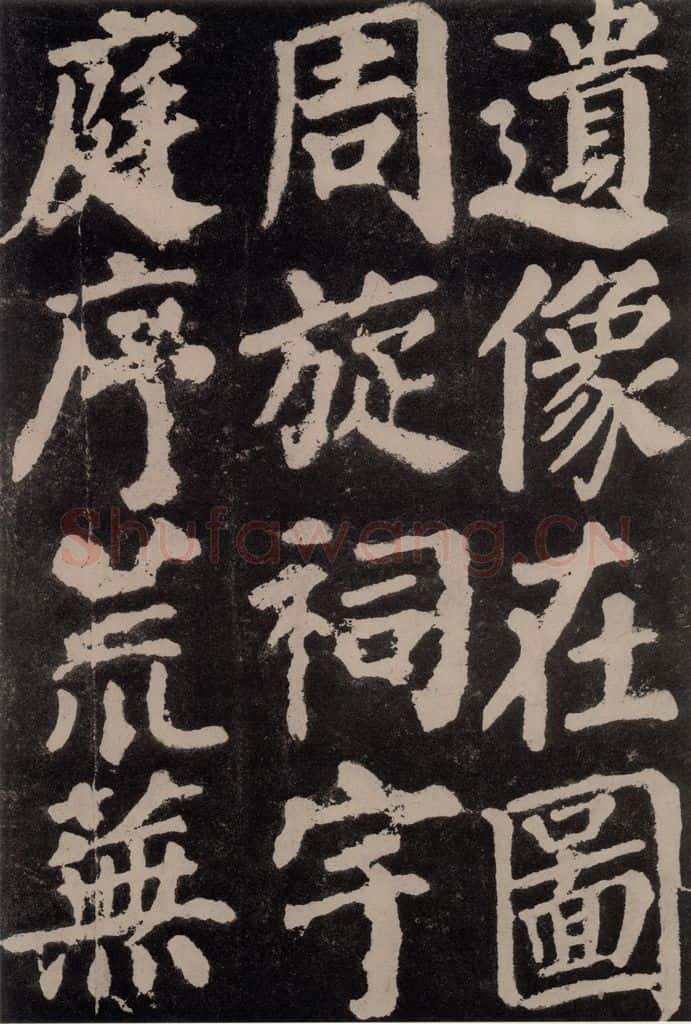 遺像在圖
周旋祠宇
庭序荒蕪
Shufawang.CN